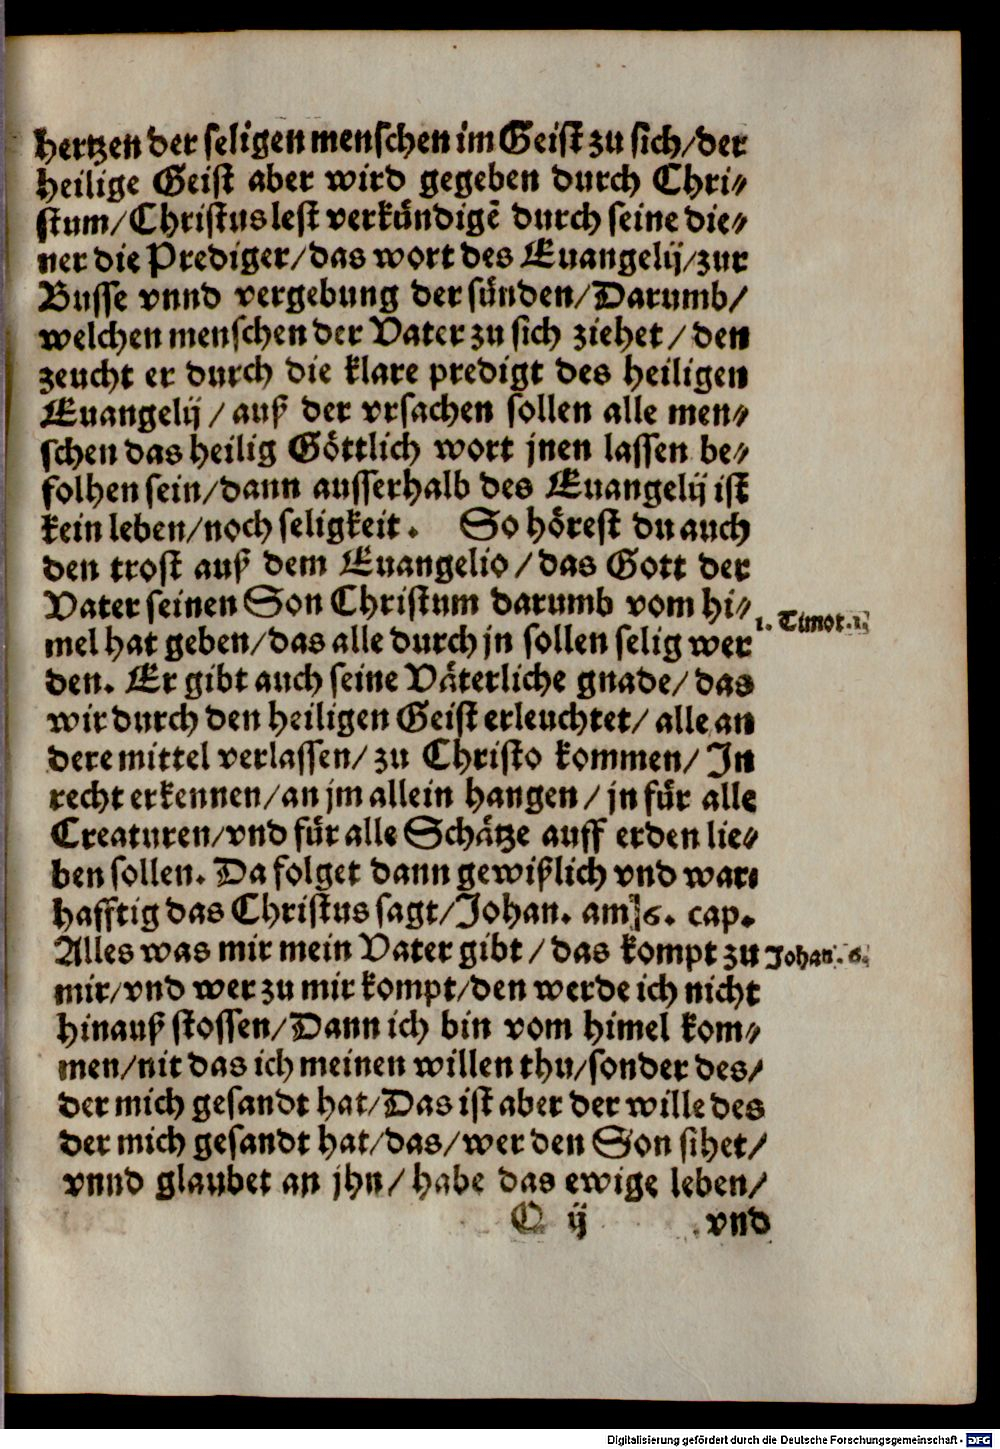 hertzen der seligen menschen im Geist zu sich/der
heilige Geist aber wird gegeben durch Chri⸗
stum/Christus lest verkündigẽ durch seine die⸗
ner die Prediger/das wort des Euangelij/zur
Busse vnnd vergebung der sünden/Darumb/
welchen menschen der Vater zu sich ziehet/den
zeucht er durch die klare predigt des heiligen
Euangelij/auß der vrsachen sollen alle men⸗
schen das heilig Göttlich wort jnen lassen be⸗
folhen sein/dann ausserhalb des Euangelij ist
kein leben/noch seligkeit. So hörest du auch
den trost auß dem Euangelio/das Gott der
Vater seinen Son Christum darumb vom hi⸗
1. Timot.1.
mel hat geben/das alle durch jn sollen selig wer
den. Er gibt auch seine Väterliche gnade/das
wir durch den heiligen Geist erleuchtet/alle an
dere mittel verlassen/zu Christo kommen/In
recht erkennen/an jm allein hangen/jn für alle
Creaturen/vnd für alle Schätze auff erden lie⸗
ben sollen. Da folget dann gewißlich vnd war⸗
hafftig das Christus sagt/Johan. am 6. cap.
Alles was mir mein Vater gibt/das kompt zu
Johan. 6.
mir/vnd wer zu mir kompt/den werde ich nicht
hinauß stossen/Dann ich bin vom himel kom⸗
men/nit das ich meinen willen thu/sonder des/
der mich gesandt hat/Das ist aber der wille des
der mich gesandt hat/das/wer den Son sihet/
vnnd glaubet an jhn/habe das ewige leben/
C ij vnd
Digitalisierung gefördert durch die Deutsche Forschungsgemeinschaft - DFG